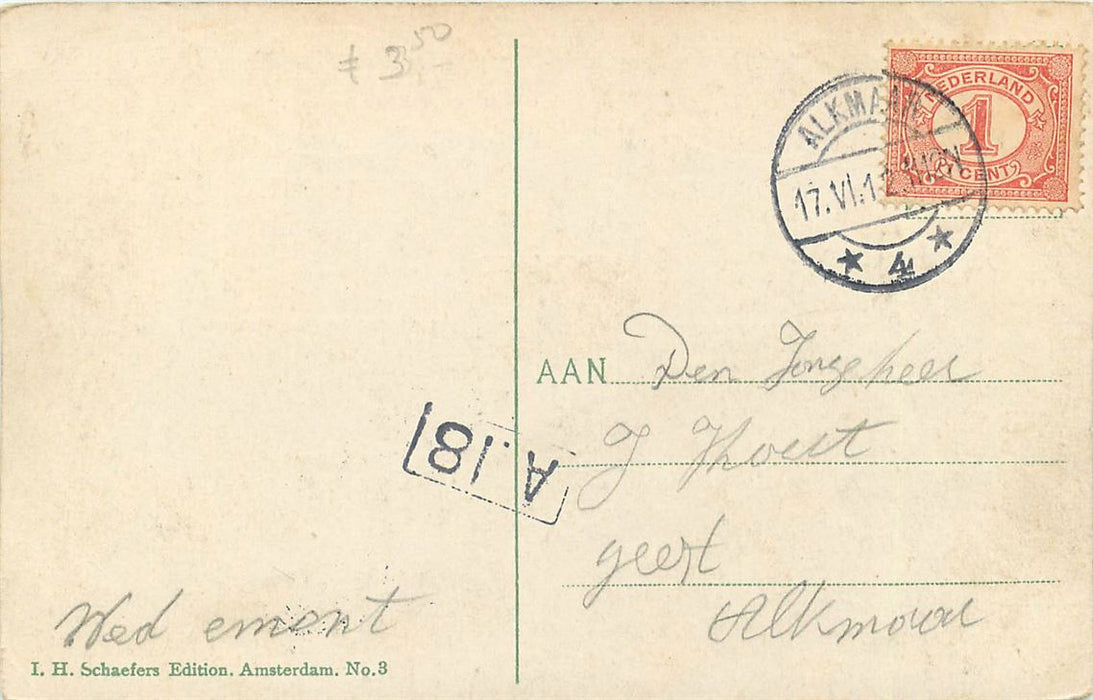 3,50
NEDERLAND
1
1 CENT
ALKMAAR
17.VI.1
4
AAN Den Jongeheer
J
geest
Alkmaar
A.18
Wed
I. H. Schaefers Edition. Amsterdam. No.3